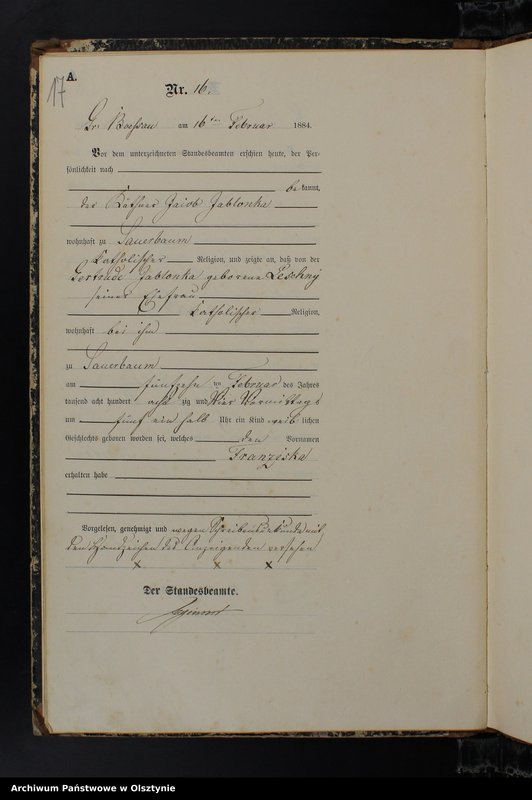 17
A.
Nr. 16.
Gr. Boeßau am 16ten Februar 1884.
Vor dem unterzeichneten Standesbeamten erschien heute, der Per-
sönlichkeit nach
be kannt,
der Käthner Jacob Jablonka
wohnhaft zu Sauerbaum
Katholischer Religion, und zeigte an, daß von der
Gertrude Jablonka geborene Leschny
seiner Ehefrau
Katholischer Religion,
wohnhaft bei ihm
zu Sauerbaum
am fünfzehn ten Februar des Jahres
tausend acht hundert acht zig und Vier Vormittags
um fünf ein halb Uhr ein Kind weib lichen
Geschlechts geboren worden sei, welches den Vornamen
Franziska
erhalten habe
Vorgelesen, genehmigt und wegen Schreibensunkunde mit
den Handzeichen des Anzeigenden versehen
x x x
Der Standesbeamte.
Archiwum Państwowe w Olsztynie